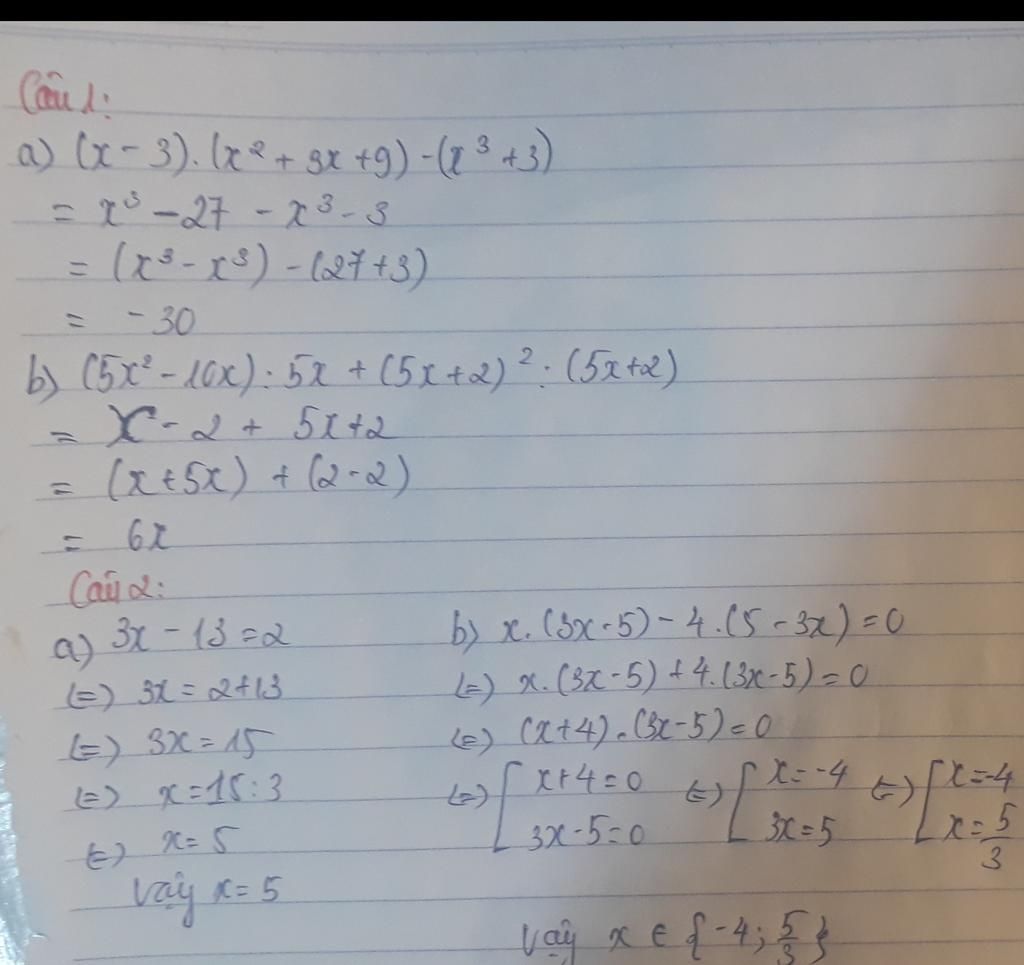 Câu 1:
a) (x - 3).(x² + 3x + 9) - (x³ + 3)
= x³ - 27 - x³ - 3
= (x³ - x³) - (27 + 3)
= -30
b) (5x² - 10x) : 5x + (5x + 2)² : (5x+2)
= x - 2 + 5x + 2
= (x + 5x) + (2 - 2)
= 6x
Câu 2:
a) 3x - 13 = 2
(=) 3x = 2 + 13
(=) 3x = 15
(=) x = 15 : 3
(=) x = 5
Vậy x = 5
b) x.(3x - 5) - 4.(5 - 3x) = 0
(=) x.(3x - 5) + 4.(3x - 5) = 0
(=) (x + 4).(3x - 5) = 0
(=) [ x + 4 = 0 (=) [ x = -4 (=) [ x = -4
3x - 5 = 0 3x = 5 x = 5/3
Vậy x ∈ {-4; 5/3}